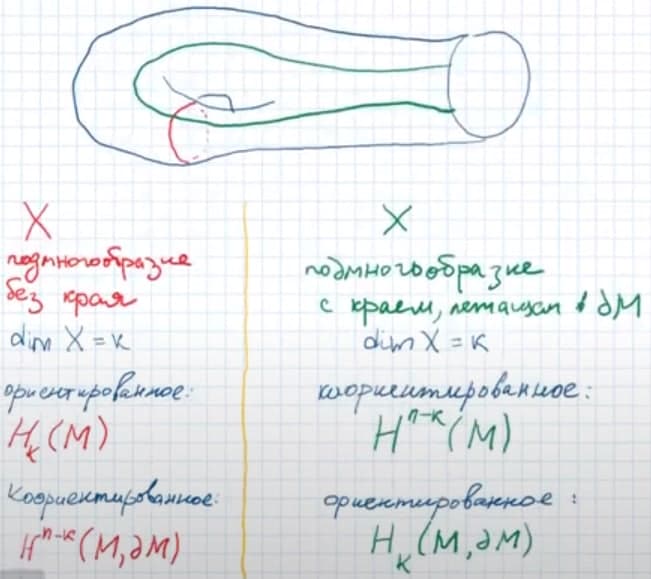 X
подмногообразие
без края
dim X = k
ориентированное:
H_k(M)
Коориентированное:
H^{n-k}(M,∂M)
X
подмногообразие
с краем, лежащем в ∂M
dim X = k
коориентированное:
H^{n-k}(M)
ориентированное:
H_k(M,∂M)